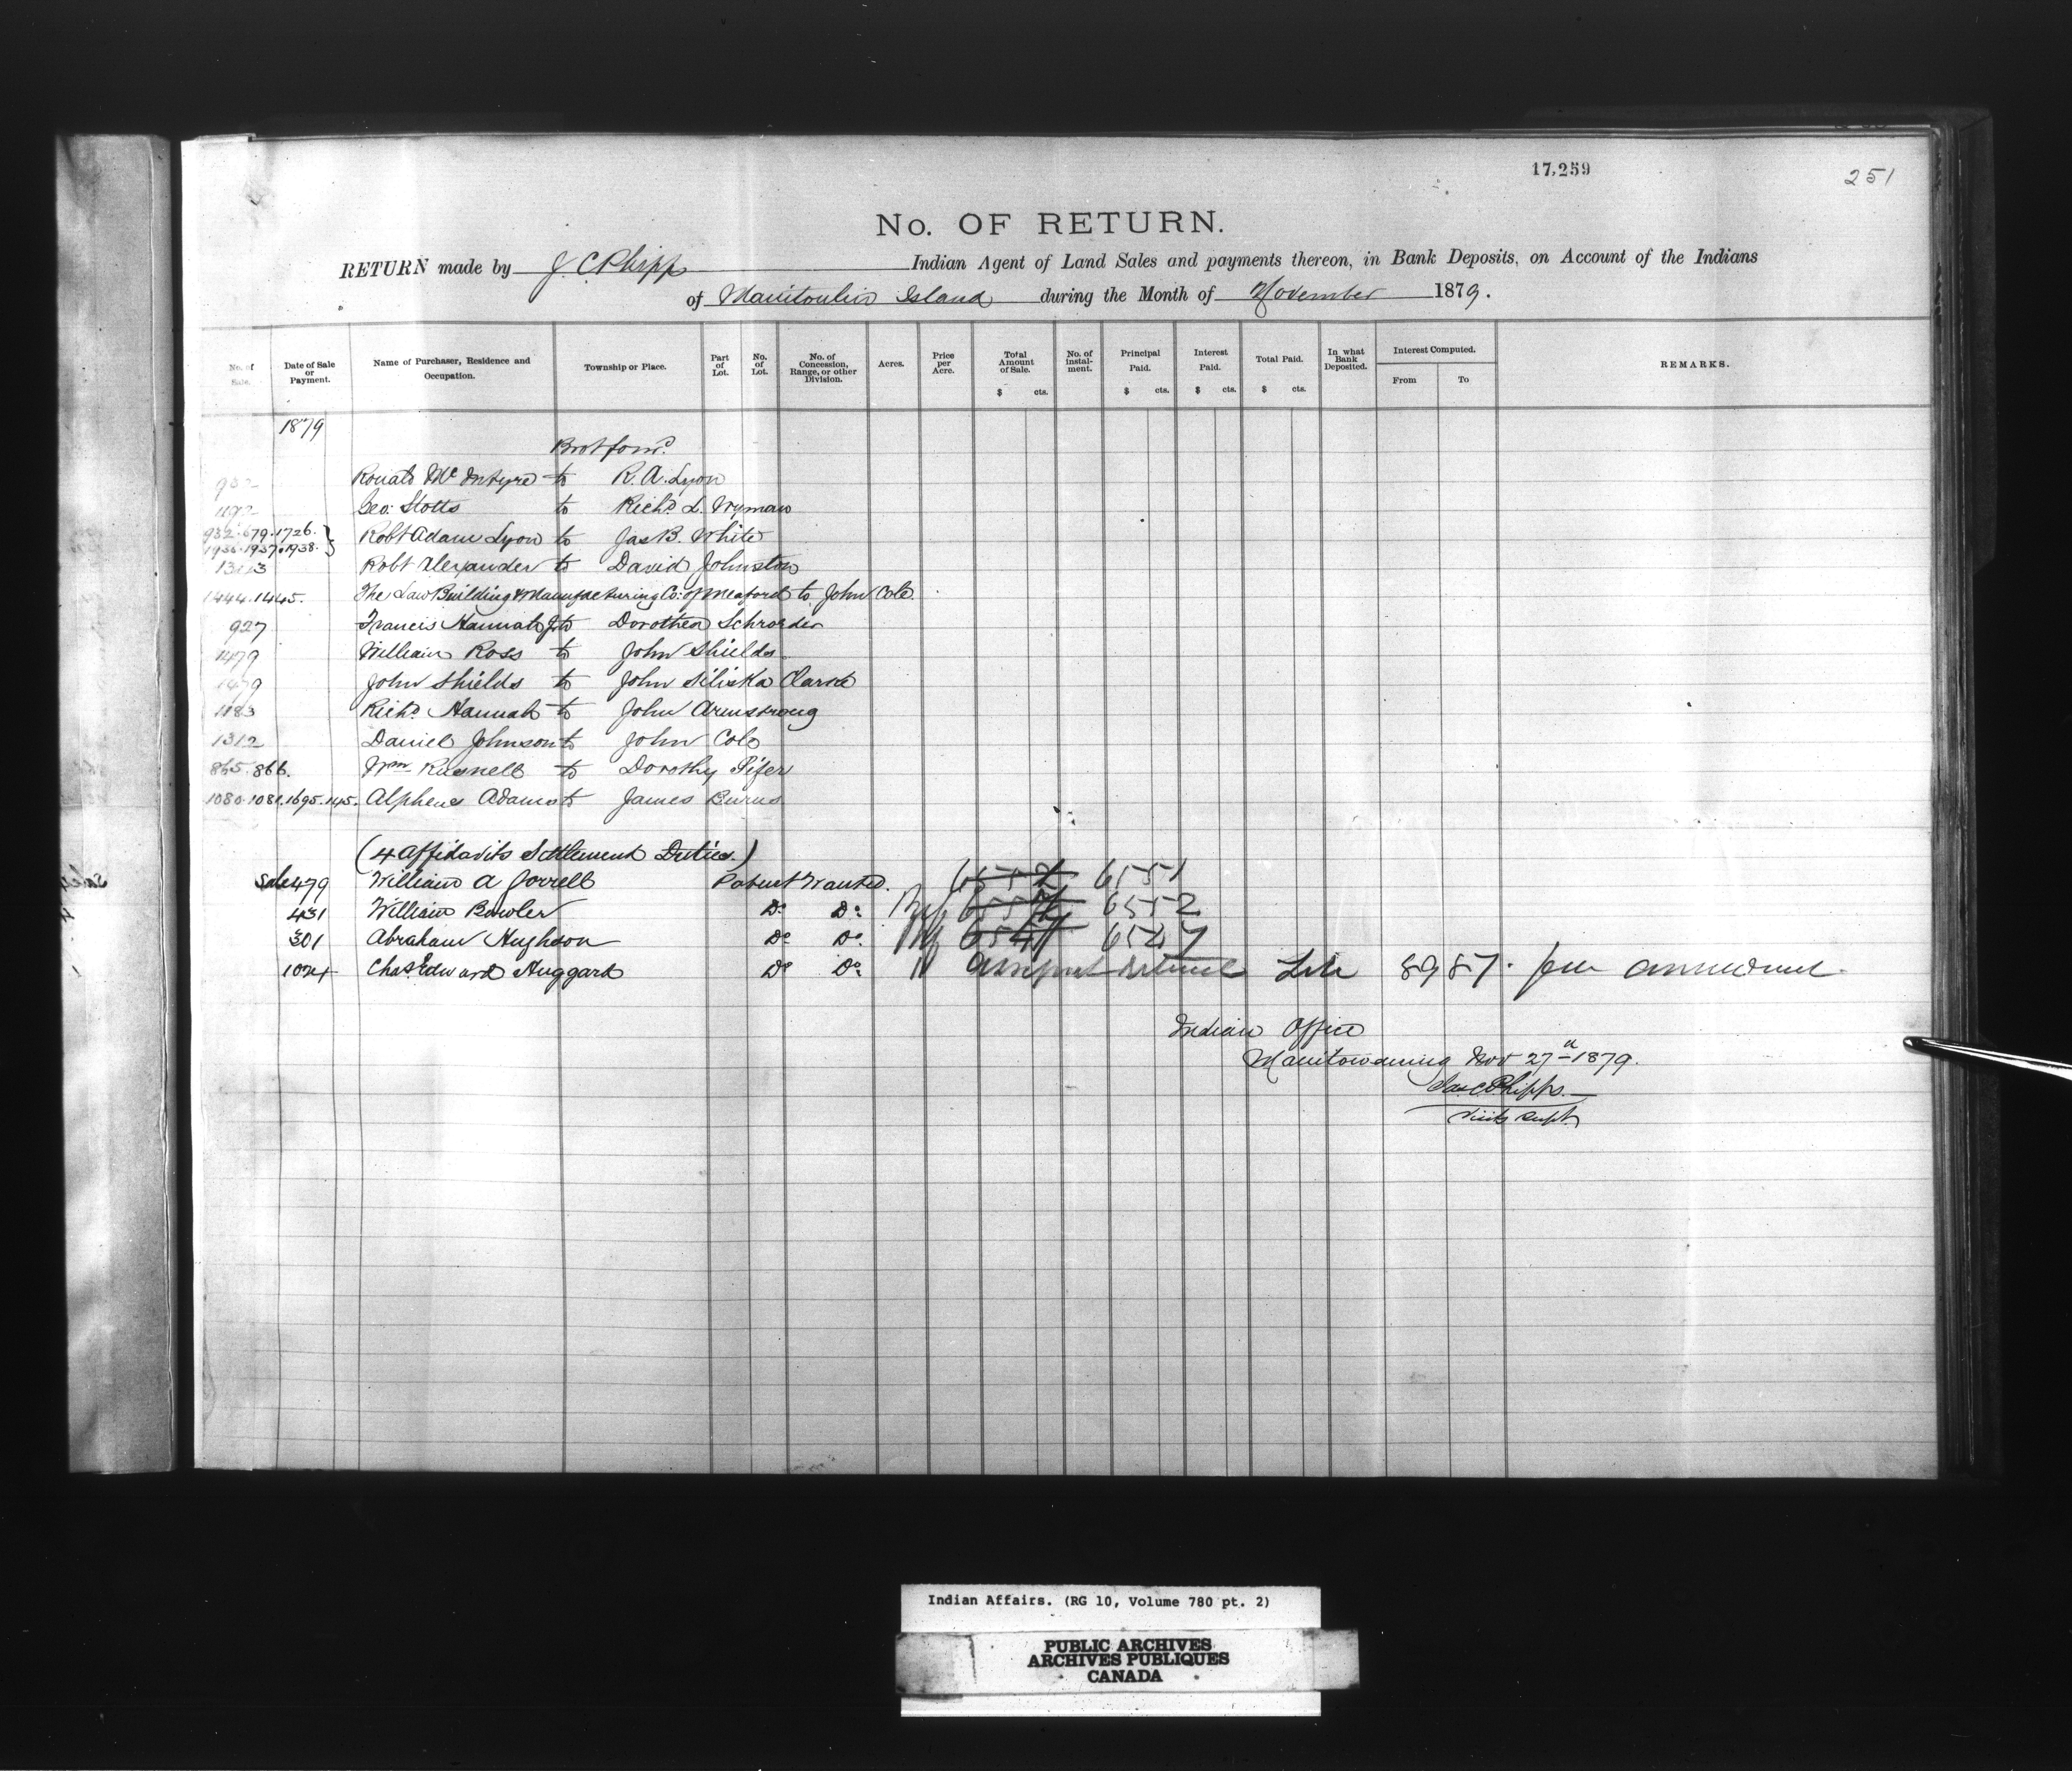 17,259
251
No. OF RETURN.
RETURN made by J. C Phipps Indian Agent of Land Sales and payments thereon, in Bank Deposits, on Account of the Indians
of Manitoulin Island during the Month of November 1879.
No. of Sale. Date of Sale or Payment. Name of Purchaser, Residence and Occupation. Township or Place. Part of Lot. No. of Lot. No. of Concession, Range, or other Division. Acres. Price per Acre. Total Amount of Sale. $ cts. No. of instal-ment. Principal Paid. $ cts. Interest Paid. $ cts. Total Paid. $ cts. In what Bank Deposited. Interest Computed. From To REMARKS.
1879
Brot forwd
932 Ronald Mc Intyre to R. A. Lyon
1192 Geo: Stotts to Richd L. Wyman
932.679.1726. } Robt Adam Lyon to Jas B. White
1936.1937.1938.
Robt Alexander to David Johnston
1444.1445. The Law Building & Manufacturing Co: of Meaford to John Cole
927 Francis Hannah Jr to Dorothea Schroeder
1479 William Ross to John Shields
1479 John Shields to John Clarke
1183 Richd Hannah to John Armstrong
1312 Daniel Johnson to John Cole
865.866. Wm to Dorothy Pifer
1080.1081.1695.145. Alpheus Adams to James Burns
(4 Affidavits Settlement Duties.)
Sale 479 William A Jorrell Patent Wanted. 6551
431 William Bowler Do Do 6552
301 Abraham Hughson Do Do 6547
1024 Chas Edward Huggard Do Do 8987.
Indian Office
Manitowaning Nov 27th 1879.
Jas C Phipps.
Visitg Supt
Indian Affairs. (RG 10, Volume 780 pt. 2)
PUBLIC ARCHIVES
ARCHIVES PUBLIQUES
CANADA